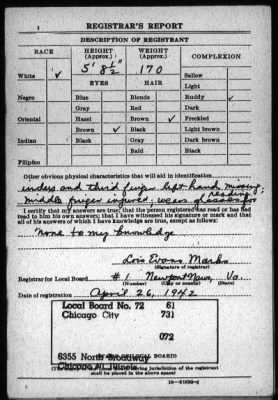 1 REGISTRAR'S REPORT
DESCRIPTION OF REGISTRANT
RACE HEIGHT (Approx.) WEIGHT (Approx.) COMPLEXION
5' 8½" 170
White ✓ EYES HAIR Sallow
Light
Negro Blue Blonde Ruddy ✓
Gray Red Dark
Oriental Hazel Brown ✓ Freckled
Brown ✓ Black Light brown
Indian Black Gray Dark brown
Bald Black
Filipino
Other obvious physical characteristics that will aid in identification
index and third finger left hand missing;
middle finger injured; wears glasses for reading
I certify that my answers are true; that the person registered has read or has had
read to him his own answers; that I have witnessed his signature or mark and that
all of his answers of which I have knowledge are true, except as follows:
None to my knowledge
Lois Evans Marks
(Signature of registrar)
Registrar for Local Board #1 Newport News, Va.
(Number) (City or county) (State)
Date of registration April 26, 1942
Local Board No. 72 61
Chicago City 731
072
6355 North Broadway
Chicago Illinois
LOCAL BOARD)
jurisdiction of the registrant
shall be placed in the above space)